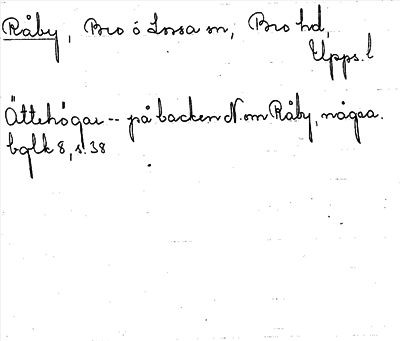 Råby, Bro o Lossa sn, Bro hd,
Upps. l
Ättehögar -- på backen N. om Råby, några.
bglk 8, s. 38